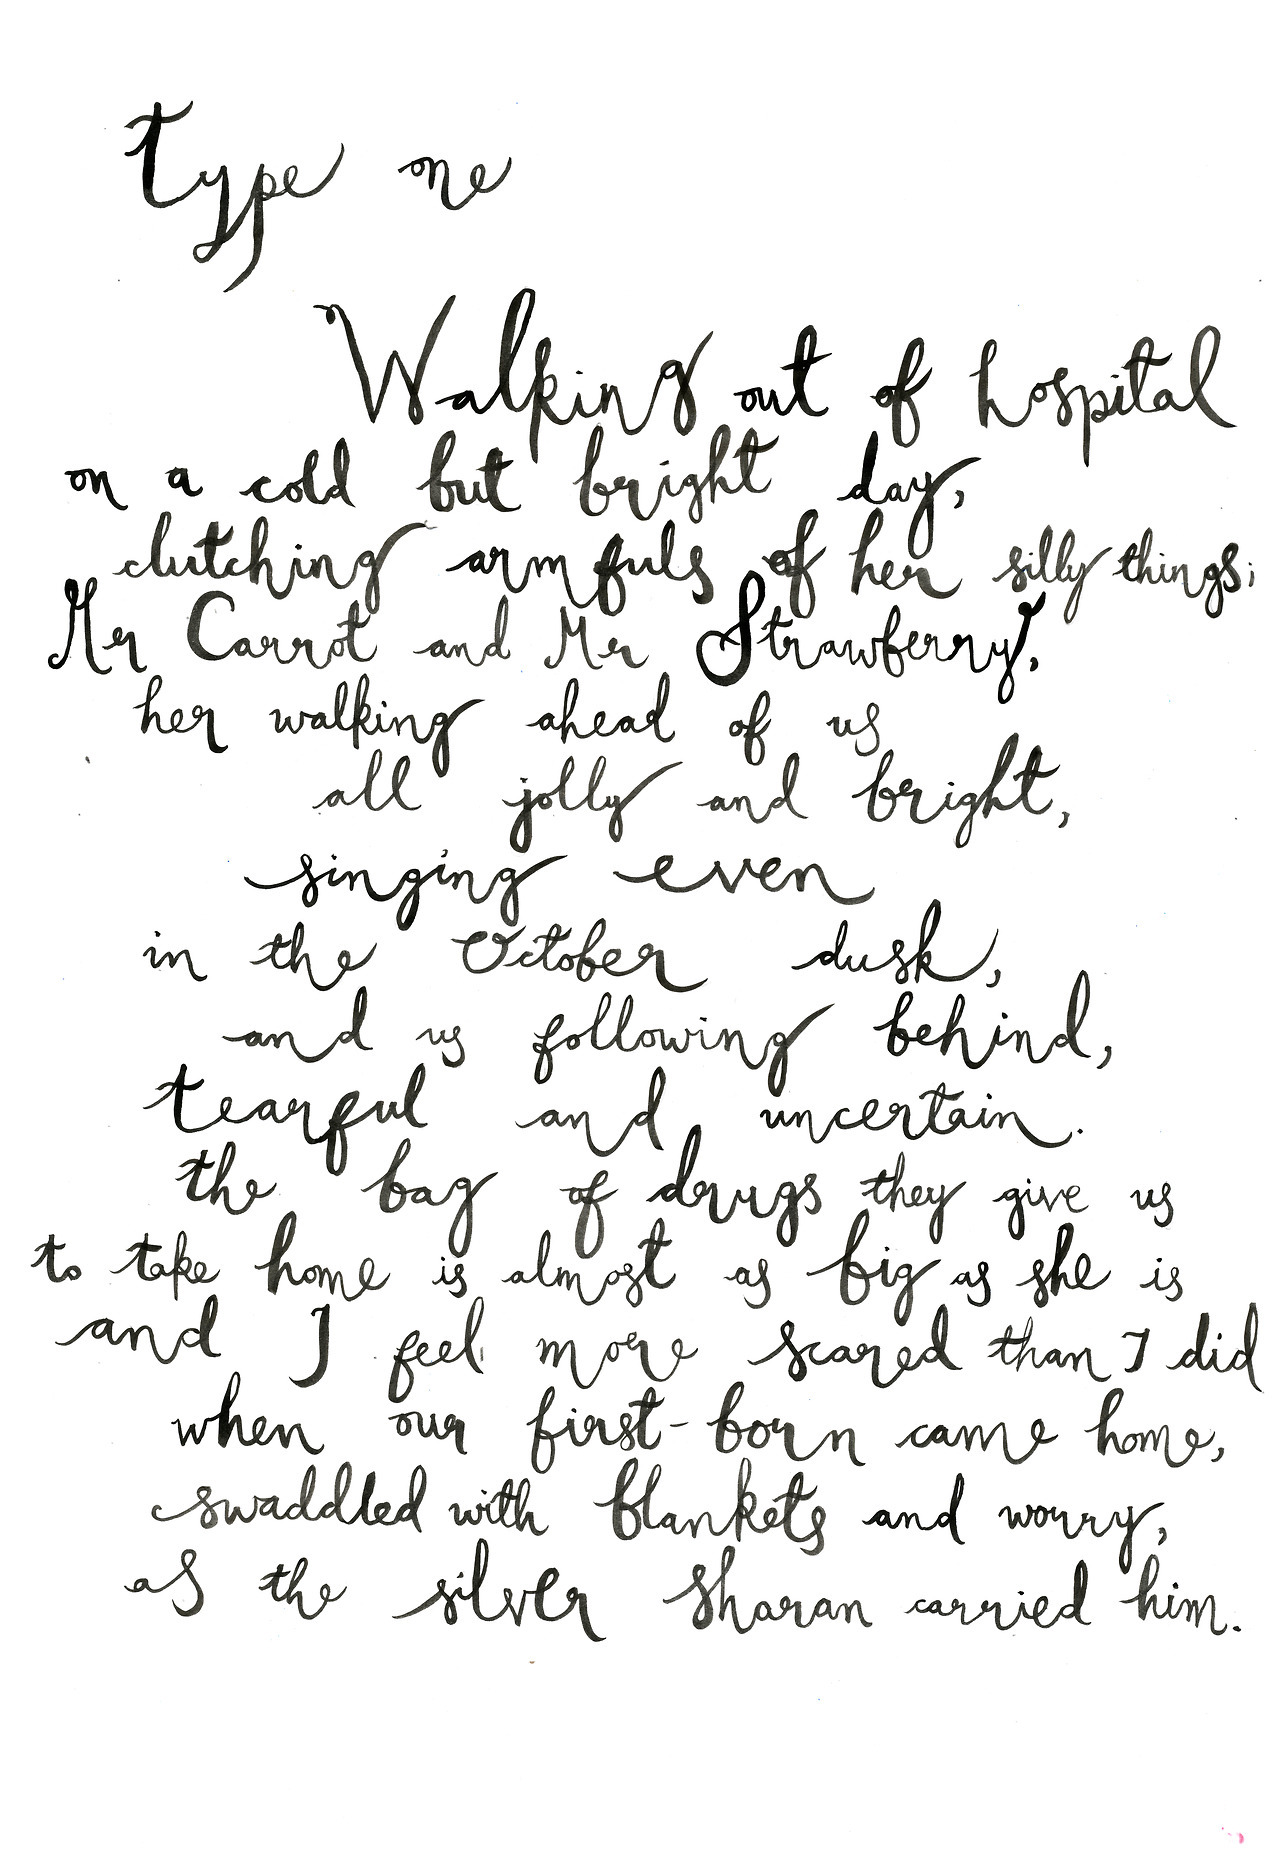 type one
Walking out of hospital
on a cold but bright day,
clutching armfuls of her silly things;
Mr Carrot and Mr Strawberry,
her walking ahead of us
all jolly and bright,
singing even
in the October dusk,
and us following behind,
tearful and uncertain.
the bag of drugs they give us
to take home is almost as big as she is
and I feel more scared than I did
when our first-born came home,
swaddled with blankets and worry,
as the silver Sharan carried him.